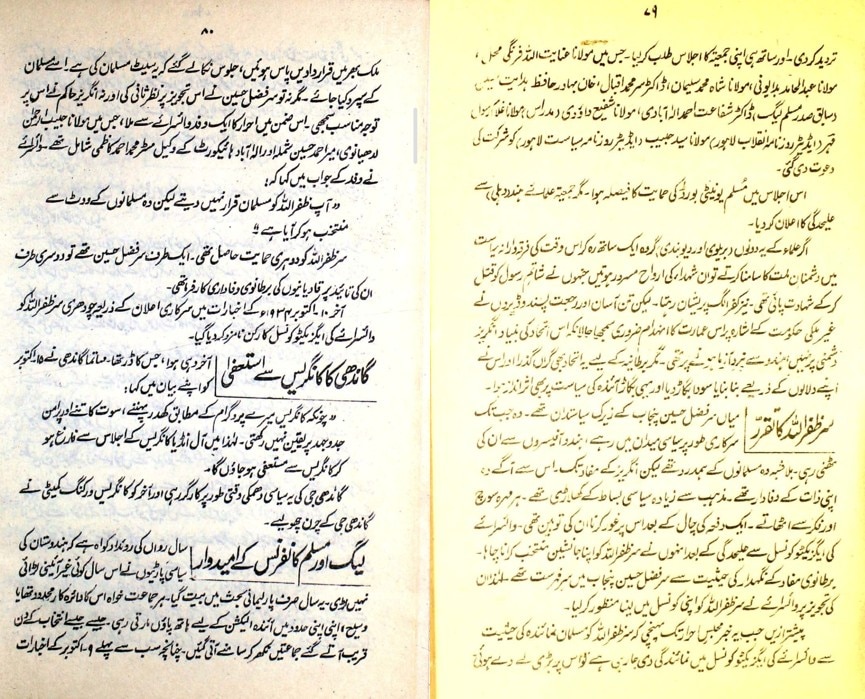 ۷۹
تردید کر دی۔ اور ساتھ ہی اپنی جمعیتہ کا اجلاس طلب کر لیا۔ جس میں مولانا عنایت اللہ فرنگی محل،
مولانا عبدالحامد بدایونی، مولانا شاہ محمد سلیمان، ڈاکٹر سر محمد اقبال، خان بہادر حافظ ہدایت حسین
(سابق صدر مسلم لیگ) ڈاکٹر شفاعت احمد الہ آبادی، مولانا شفیع داؤدی (مدراس) مولانا غلام رسول
مہر (ایڈیٹر روزنامہ انقلاب لاہور) مولانا سید حبیب (ایڈیٹر روزنامہ سیاست لاہور) کو شرکت کی
دعوت دی گئی۔
اس اجلاس میں مُسلم یونیٹی بورڈ کی حمایت کا فیصلہ ہوا۔ مگر جمعیتہ علمائے ہند (دہلی) سے
علیحدگی کا اعلان کر دیا۔
اگر علماء کے یہ دونوں (بریلوی اور دیوبندی) گروہ ایک ساتھ رہ کر اس وقت کی فرقہ وارانہ سیاست
میں دشمنانِ ملت کا سامنا کرتے تو ان شہداء کی ارواح مسرور ہوتیں جنہوں نے شاتمِ رسول کو قتل
کر کے شہادت پائی تھی۔ نیز کفر انگ پریشان رہتا۔ لیکن تن آسان اور رجعت پسند وڈیروں نے
غیر ملکی حکومت کے اشارہ پر اس عمارت کا انہدام ضروری سمجھا حالانکہ اس اتحاد کی بنیاد انگریز
دشمنی پر نہیں ہندو سے نبرد آزما ہونے پر تھی۔ مگر برطانیہ کے لیے یہ اتحاد بھی گراں گذرا اور اس نے
اپنے دلالوں کے ذریعے بنا بنایا سودا بگاڑ دیا اور یہی بگاڑ آئندہ کی سیاست پر بھی اثرانداز ہوا۔
سر ظفر اللہ کا تقرر
میاں سر فضل حسین پنجاب کے زیرک سیاستدان تھے۔ وہ جب تک
سرکاری طور پر سیاسی میدان میں رہے، ہندو آفیسروں سے ان کی
ٹھنی رہی۔ بلاشبہ وہ مسلمانوں کے ہمدرد تھے لیکن انگریز کے مفاد تک۔ اس سے آگے وہ
اپنی ذات کے وفادار تھے۔ مذہب سے زیادہ سیاسی بساط کے کھلاڑی تھے۔ ہر مہرہ سوچ
اور فکر سے اٹھاتے۔ ایک دفعہ کی چال کے بعد اس پر غور کرنا ان کی توہین تھی۔ وائسرائے
کی ایگزیکٹو کونسل سے علیحدگی کے بعد انہوں نے سر ظفر اللہ کو اپنا جانشین منتخب کرانا چاہا۔
برطانوی مفاد کے نگہدار کی حیثیت سے سر فضل حسین پنجاب میں سرفہرست تھے۔ لہٰذا ان
کی تجویز پر وائسرائے نے سر ظفر اللہ کو اپنی کونسل میں لینا منظور کر لیا۔
پیشتر ازیں جب یہ خبر مجلس احرار تک پہنچی کہ سر ظفر اللہ کو مسلمان نمائندہ کی حیثیت
سے وائسرائے کی ایگزیکٹو کونسل میں نمائندگی دی جا رہی ہے تو اس پر بڑی لے دے ہوئی
۸۰
ملک بھر میں قراردادیں پاس ہوئیں، جلوس نکالے گئے کہ یہ سیٹ مسلمان کی ہے اسے مسلمان
کے سپرد کیا جائے۔ مگر نہ تو سر فضل حسین نے اس تجویز پر نظرثانی کی اور نہ انگریز حاکم نے اس پر
توجہ مناسب سمجھی۔ اس ضمن میں احرار کا ایک وفد وائسرائے سے ملا، جس میں مولانا حبیب الرحمٰن
لدھیانوی، میر احمد حسین شملہ اور الہ آباد ہائیکورٹ کے وکیل مسٹر محمد احمد کاظمی شامل تھے۔ وائسرائے
نے وفد کے جواب میں کہا کہ:
”آپ ظفر اللہ کو مسلمان قرار نہیں دیتے لیکن وہ مسلمانوں کے ووٹ سے
منتخب ہو کر آیا ہے“
سر ظفر اللہ کو دوہری حمایت حاصل تھی۔ ایک طرف سر فضل حسین تھے تو دوسری طرف
ان کی تائید پر قادیانیوں کی برطانوی وفاداری کارفرما تھی۔
آخر ۱۰۔ اکتوبر ۱۹۳۴ء کے اخبارات میں سرکاری اعلان کے ذریعہ چودھری سر ظفر اللہ کو
وائسرائے کی ایگزیکٹو کونسل کا رکن نامزد کر دیا گیا۔
گاندھی کا کانگریس سے استعفیٰ
آخر وہی ہوا، جس کا ڈر تھا۔ مہاتما گاندھی نے ۱۵۔ اکتوبر
کو اپنے بیان میں کہا:
”چونکہ کانگریس میرے پروگرام کے مطابق کھدر پہننے، سوت کاتنے اور پرامن
جدوجہد پر یقین نہیں رکھتی۔ لہٰذا میں آل انڈیا کانگریس کے اجلاس سے فارغ ہو
کر کانگریس سے مستعفی ہو جاؤں گا۔
گاندھی جی کی یہ سیاسی دھمکی وقتی طور پر کارگر رہی اور آخر کو کانگریس ورکنگ کمیٹی نے
گاندھی جی کے چرن چھو لیے۔
لیگ اور مسلم کانفرنس کے امیدوار
سال رواں کی روئداد گواہ ہے کہ ہندوستان کی
سیاسی پارٹیوں نے اس سال کوئی غیر آئینی لڑائی
نہیں لڑی۔ یہ سال صرف پارلیمانی بحث میں بیت گیا۔ ہر جماعت خواہ اس کا دائرہ کار محدود تھا یا
وسیع، اپنی اپنی حدود میں آئندہ الیکشن کے لیے ہاتھ پاؤں مارتی رہی۔ جیسے جیسے انتخاب کے دن
قریب آتے گئے جماعتیں نکھر کر سامنے آتی گئیں۔ چنانچہ سب سے پہلے ۹۔ اکتوبر کے اخبارات